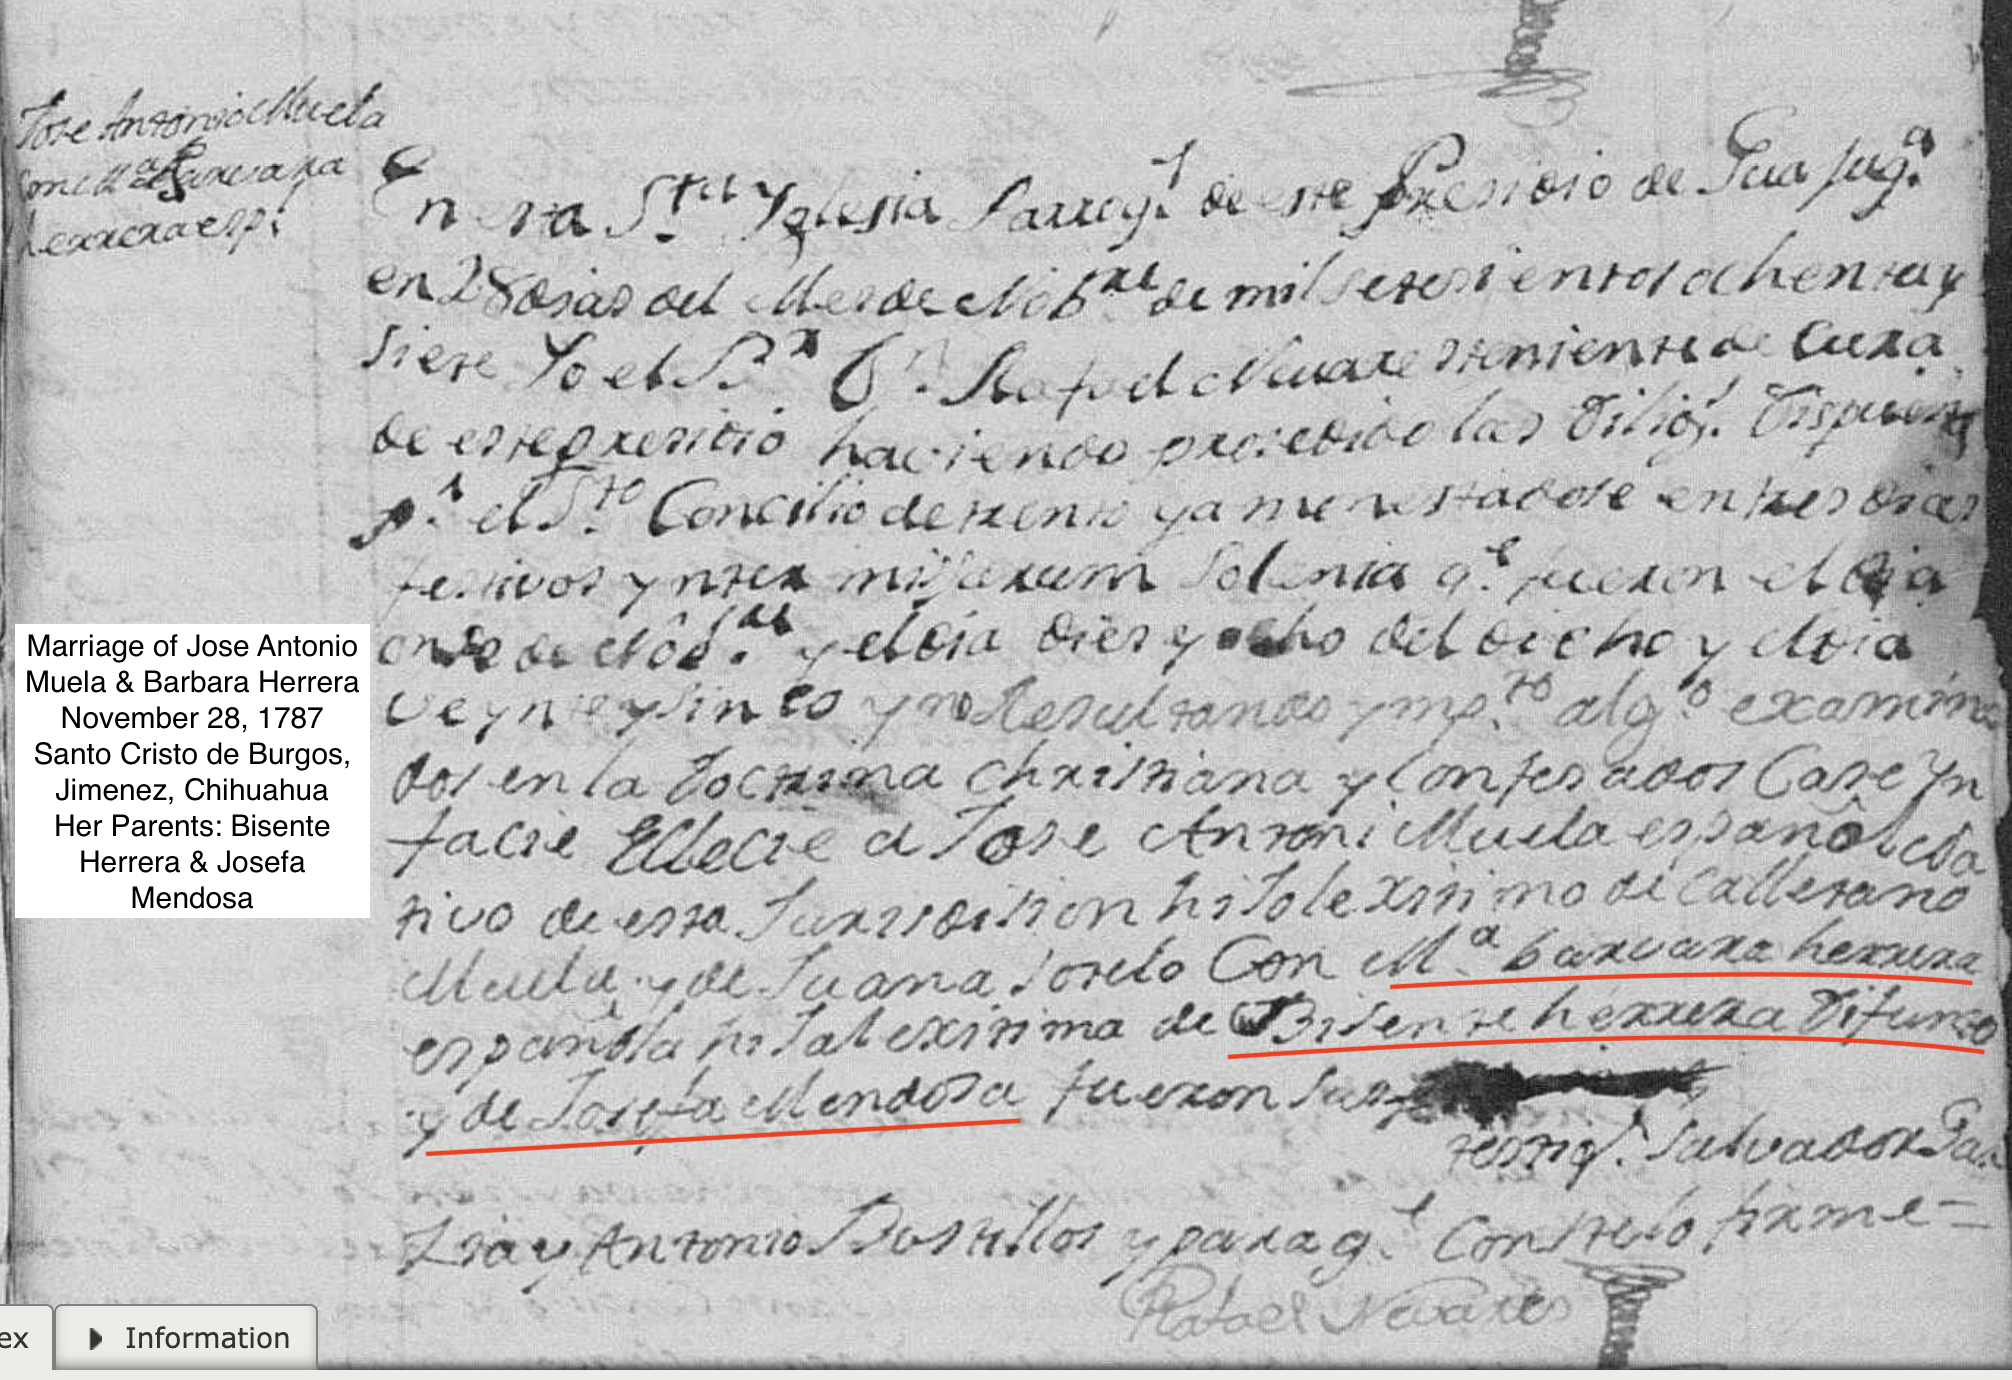 Jose Antonio Muela
con M.a Barvara
herrera esp.
En esta S.ta Yglesia Parroq.l de este Presidio de Guajuq.a
en 28 dias del Mes de Nobre de mil setesientos ochenta y
siete Yo el B.r D.n Rafael Nevares teniente de Cura
de este presidio haviendo presedido las Dilig.s Dispuest
p.r el S.to Concilio de trento y amonestadose en tres dias
festivos ynter misarum Solenia q.e fueron el dia
onse de Nobre y el dia dies y ocho del dicho y el dia
veynte y sinco y no Resultando ymp.to alg.o examina
dos en la Doctrina Christiana y Confesados Case Yn
facie Eclecie a Jose Antoni Muela español Na
tivo de esta Jurisdision hijo lexitimo de Calletano
Muela y de Juana Sotelo Con M.a barvara herrera
española hija lexitima de Bisente herrera Difunto
y de Josefa Mendosa fueron sus
testig.s Salvador Gar
Antonio Bustillos y para q.e Conste lo firme =
Rafael Nevares
Marriage of Jose Antonio
Muela & Barbara Herrera
November 28, 1787
Santo Cristo de Burgos,
Jimenez, Chihuahua
Her Parents: Bisente
Herrera & Josefa
Mendosa
ex
Information